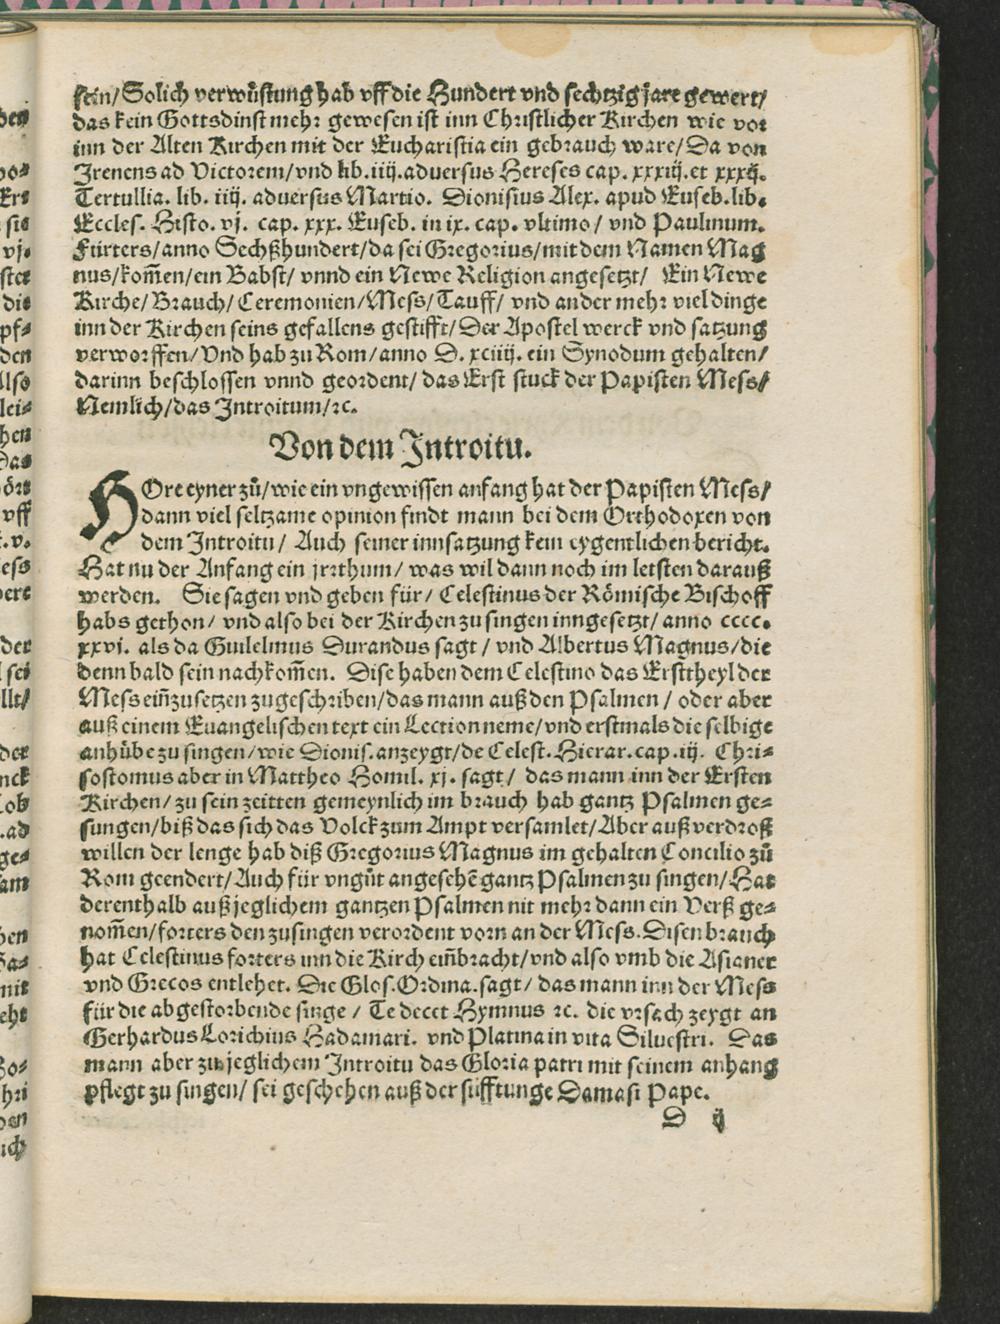 sein/Solich verwůstung hab vff die Hundert vnd sechtzig jare gewert/
das kein Gottsdinst mehr gewesen ist inn Christlicher Kirchen wie vor
inn der Alten Kirchen mit der Eucharistia ein gebrauch ware/Da von
Irenens ad Victorem/vnd lib. iiij. aduersus Hereses cap. xxxiij. et xxxij.
Tertullia. lib. iiij. aduersus Martio. Dionisius Alex. apud Euseb. lib.
Eccles. Histo. vj. cap. xxx. Euseb. in ix. cap. vltimo/ vnd Paulinum.
Fürters/anno Sechßhundert/da sei Gregorius/mit dem Namen Mag
nus/kom̃en/ein Babst/ vnnd ein Newe Religion angesetzt/ Ein Newe
Kirche/Brauch/Ceremonien/Mess/Tauff/ vnd ander mehr viel dinge
inn der Kirchen seins gefallens gestifft/Der Apostel werck vnd satzung
verworffen/Vnd hab zu Rom/anno D. xciiij. ein Synodum gehalten/
darinn beschlossen vnnd geordent/das Erst stuck der Papisten Mess/
Nemlich/das Introitum/ꝛc.
Von dem Introitu.
HOre eyner zů/wie ein vngewissen anfang hat der Papisten Mess/
dann viel seltzame opinion findt mann bei dem Orthodoxen von
dem Introitu/ Auch seiner innsatzung kein eygentlichen bericht.
Hat nu der Anfang ein jrrthum/ was wil dann noch im letsten darauß
werden. Sie sagen vnd geben für/ Celestinus der Römische Bischoff
habs gethon/ vnd also bei der Kirchen zu singen inngesetzt/ anno cccc.
xxvi. als da Guilelmus Durandus sagt/ vnd Albertus Magnus/die
denn bald sein nachkom̃en. Dise haben dem Celestino das Erst theyl der
Mess eiñzusetzen zugeschriben/das mann auß den Psalmen/ oder aber
auß einem Euangelischen text ein Lection neme/vnd erstmals die selbige
anhůbe zu singen/wie Dionis. anzeygt/de Celest. Hierar. cap. iij. Chri-
sostomus aber in Mattheo Homil. xj. sagt/ das mann inn der Ersten
Kirchen/zu sein zeitten gemeynlich im brauch hab gantz Psalmen ge-
sungen/biß das sich das Volck zum Ampt versamlet/Aber auß verdroß
willen der lenge hab diß Gregorius Magnus im gehalten Concilio zů
Rom geendert/Auch für vngůt angesehẽ gantz Psalmen zu singen/Hat
derenthalb auß jeglichem gantzen Psalmen nit mehr dann ein Verß ge-
nom̃en/forters den zusingen verordent vorn an der Mess. Disen brauch
hat Celestinus forters inn die Kirch eiñbracht/vnd also vmb die Asianer
vnd Grecos entlehet. Die Glos. Ordina. sagt/ das mann inn der Mess
für die abgestorbende singe/ Te decet Hymnus ꝛc. die vrsach zeygt an
Gerhardus Lorichius Hadamari. vnd Platina in vita Siluestri. Das
mann aber zu jeglichem Introitu das Gloria patri mit seinem anhang
pflegt zu singen/ sei geschehen auß der stifftunge Damasi Pape.
D ij